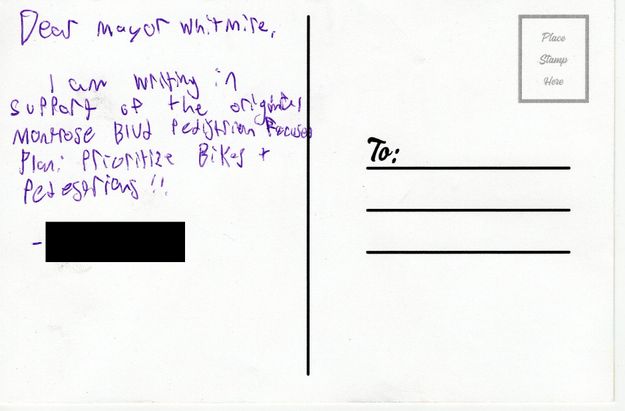 Dear mayor Whitmire,
I am writing in
support of the original
Montrose Blvd Pedistrian Focused
Plan: Prioritize Bikes +
Pedesgrians !!
-
Place
Stamp
Here
To: